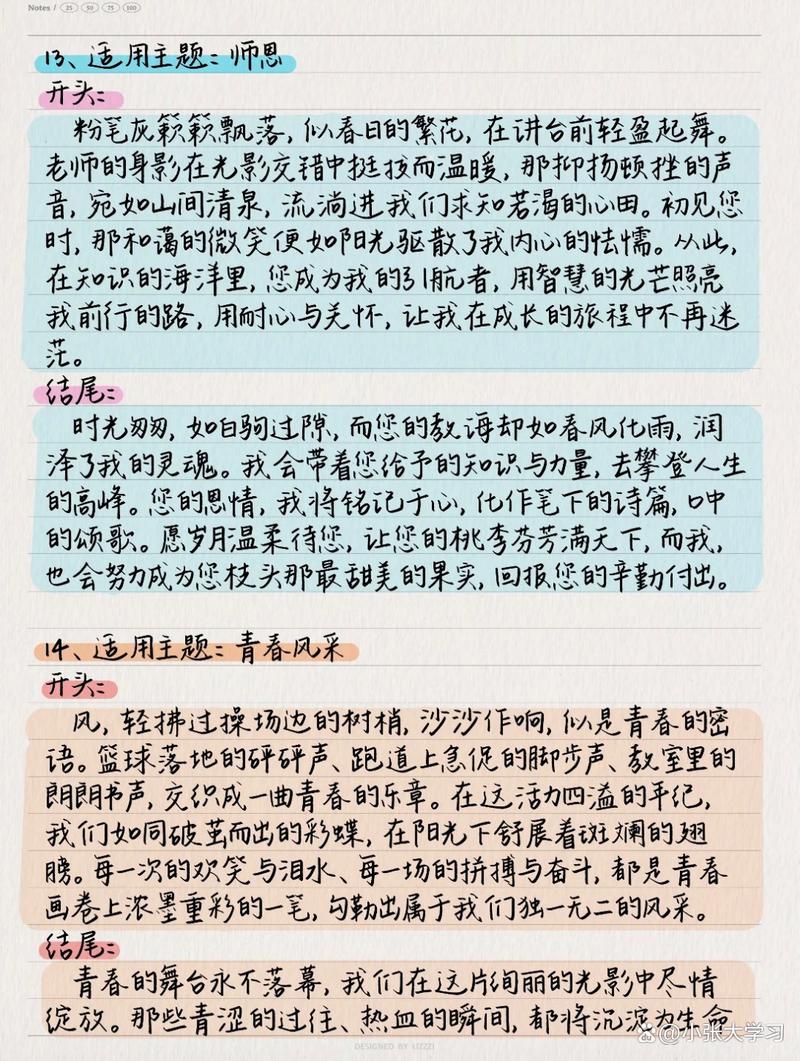 Notes / 25 50 75 100
13、适用主题：师恩
开头：
粉笔灰簌簌飘落，似春日的繁花，在讲台前轻盈起舞。
老师的身影在光影交错中挺拔而温暖，那抑扬顿挫的声
音，宛如山间清泉，流淌进我们求知若渴的心田。初见您
时，那和蔼的微笑便如阳光驱散了我内心的怯懦。从此，
在知识的海洋里，您成为我的引航者，用智慧的光芒照亮
我前行的路，用耐心与关怀，让我在成长的旅程中不再迷
茫。
结尾：
时光匆匆，如白驹过隙，而您的教诲却如春风化雨，润
泽了我的灵魂。我会带着您给予的知识与力量，去攀登人生
的高峰。您的恩情，我将铭记于心，化作笔下的诗篇，口中
的颂歌。愿岁月温柔待您，让您的桃李芬芳满天下，而我，
也会努力成为您枝头那最甜美的果实，回报您的辛勤付出。
14、适用主题：青春风采
开头：
风，轻拂过操场边的树梢，沙沙作响，似是青春的密
语。篮球落地的砰砰声、跑道上急促的脚步声、教室里的
朗朗书声，交织成一曲青春的乐章。在这活力四溢的年纪，
我们如同破茧而出的彩蝶，在阳光下舒展着斑斓的翅
膀。每一次的欢笑与泪水、每一场的拼搏与奋斗，都是青春
画卷上浓墨重彩的一笔，勾勒出属于我们独一无二的风采。
结尾：
青春的舞台永不落幕，我们在这片绚丽的光影中尽情
绽放。那些青涩的过往、热血的瞬间，都将沉淀为生命
DESIGNED BY LIZZZI
@小张大学习